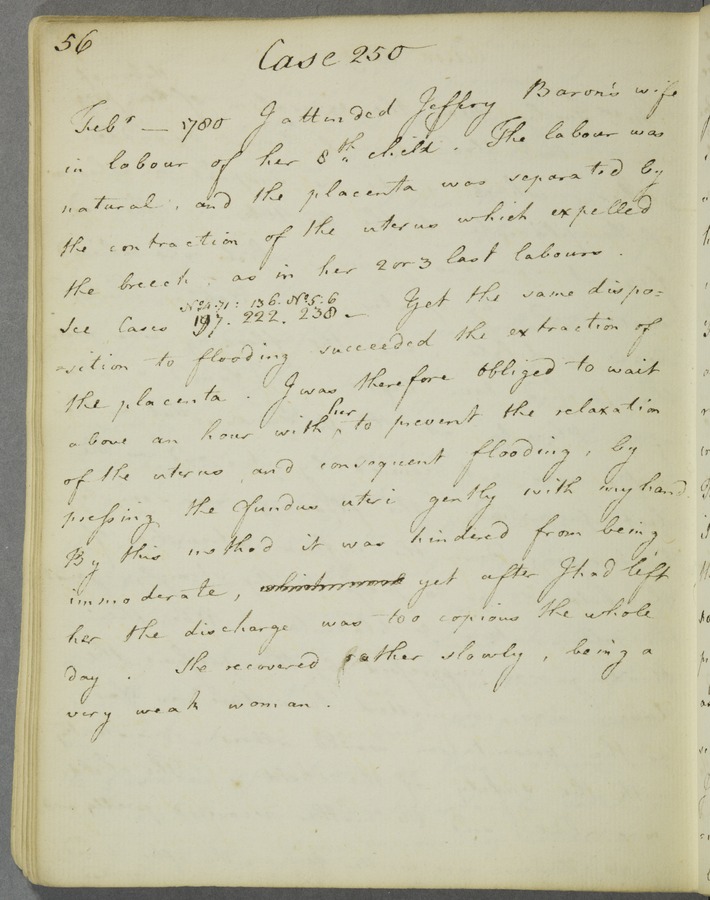 56
Case 250
Febr — 1780 I attended Jeffery Baron's wife
in labour of her 8th child. The labour was
natural, and the placenta was separated by
the contraction of the uterus which expelled
the breech. as in her 2 or 3 last labours.
136. No 5. 6
See Cases 197. 222. 238 – Yet the same dispo=
sition to flooding succeeded the extraction of
the placenta. I was therefore obliged to wait
her
above an hour with ^ to prevent the relaxation
of the uterus, and consequent flooding, by
pressing the fundus uteri gently with my hand.
By this method it was hindered from being
immoderate, yet after I had left
her the discharge was too copious the whole
day. She recovered rather slowly, being a
very weak woman.